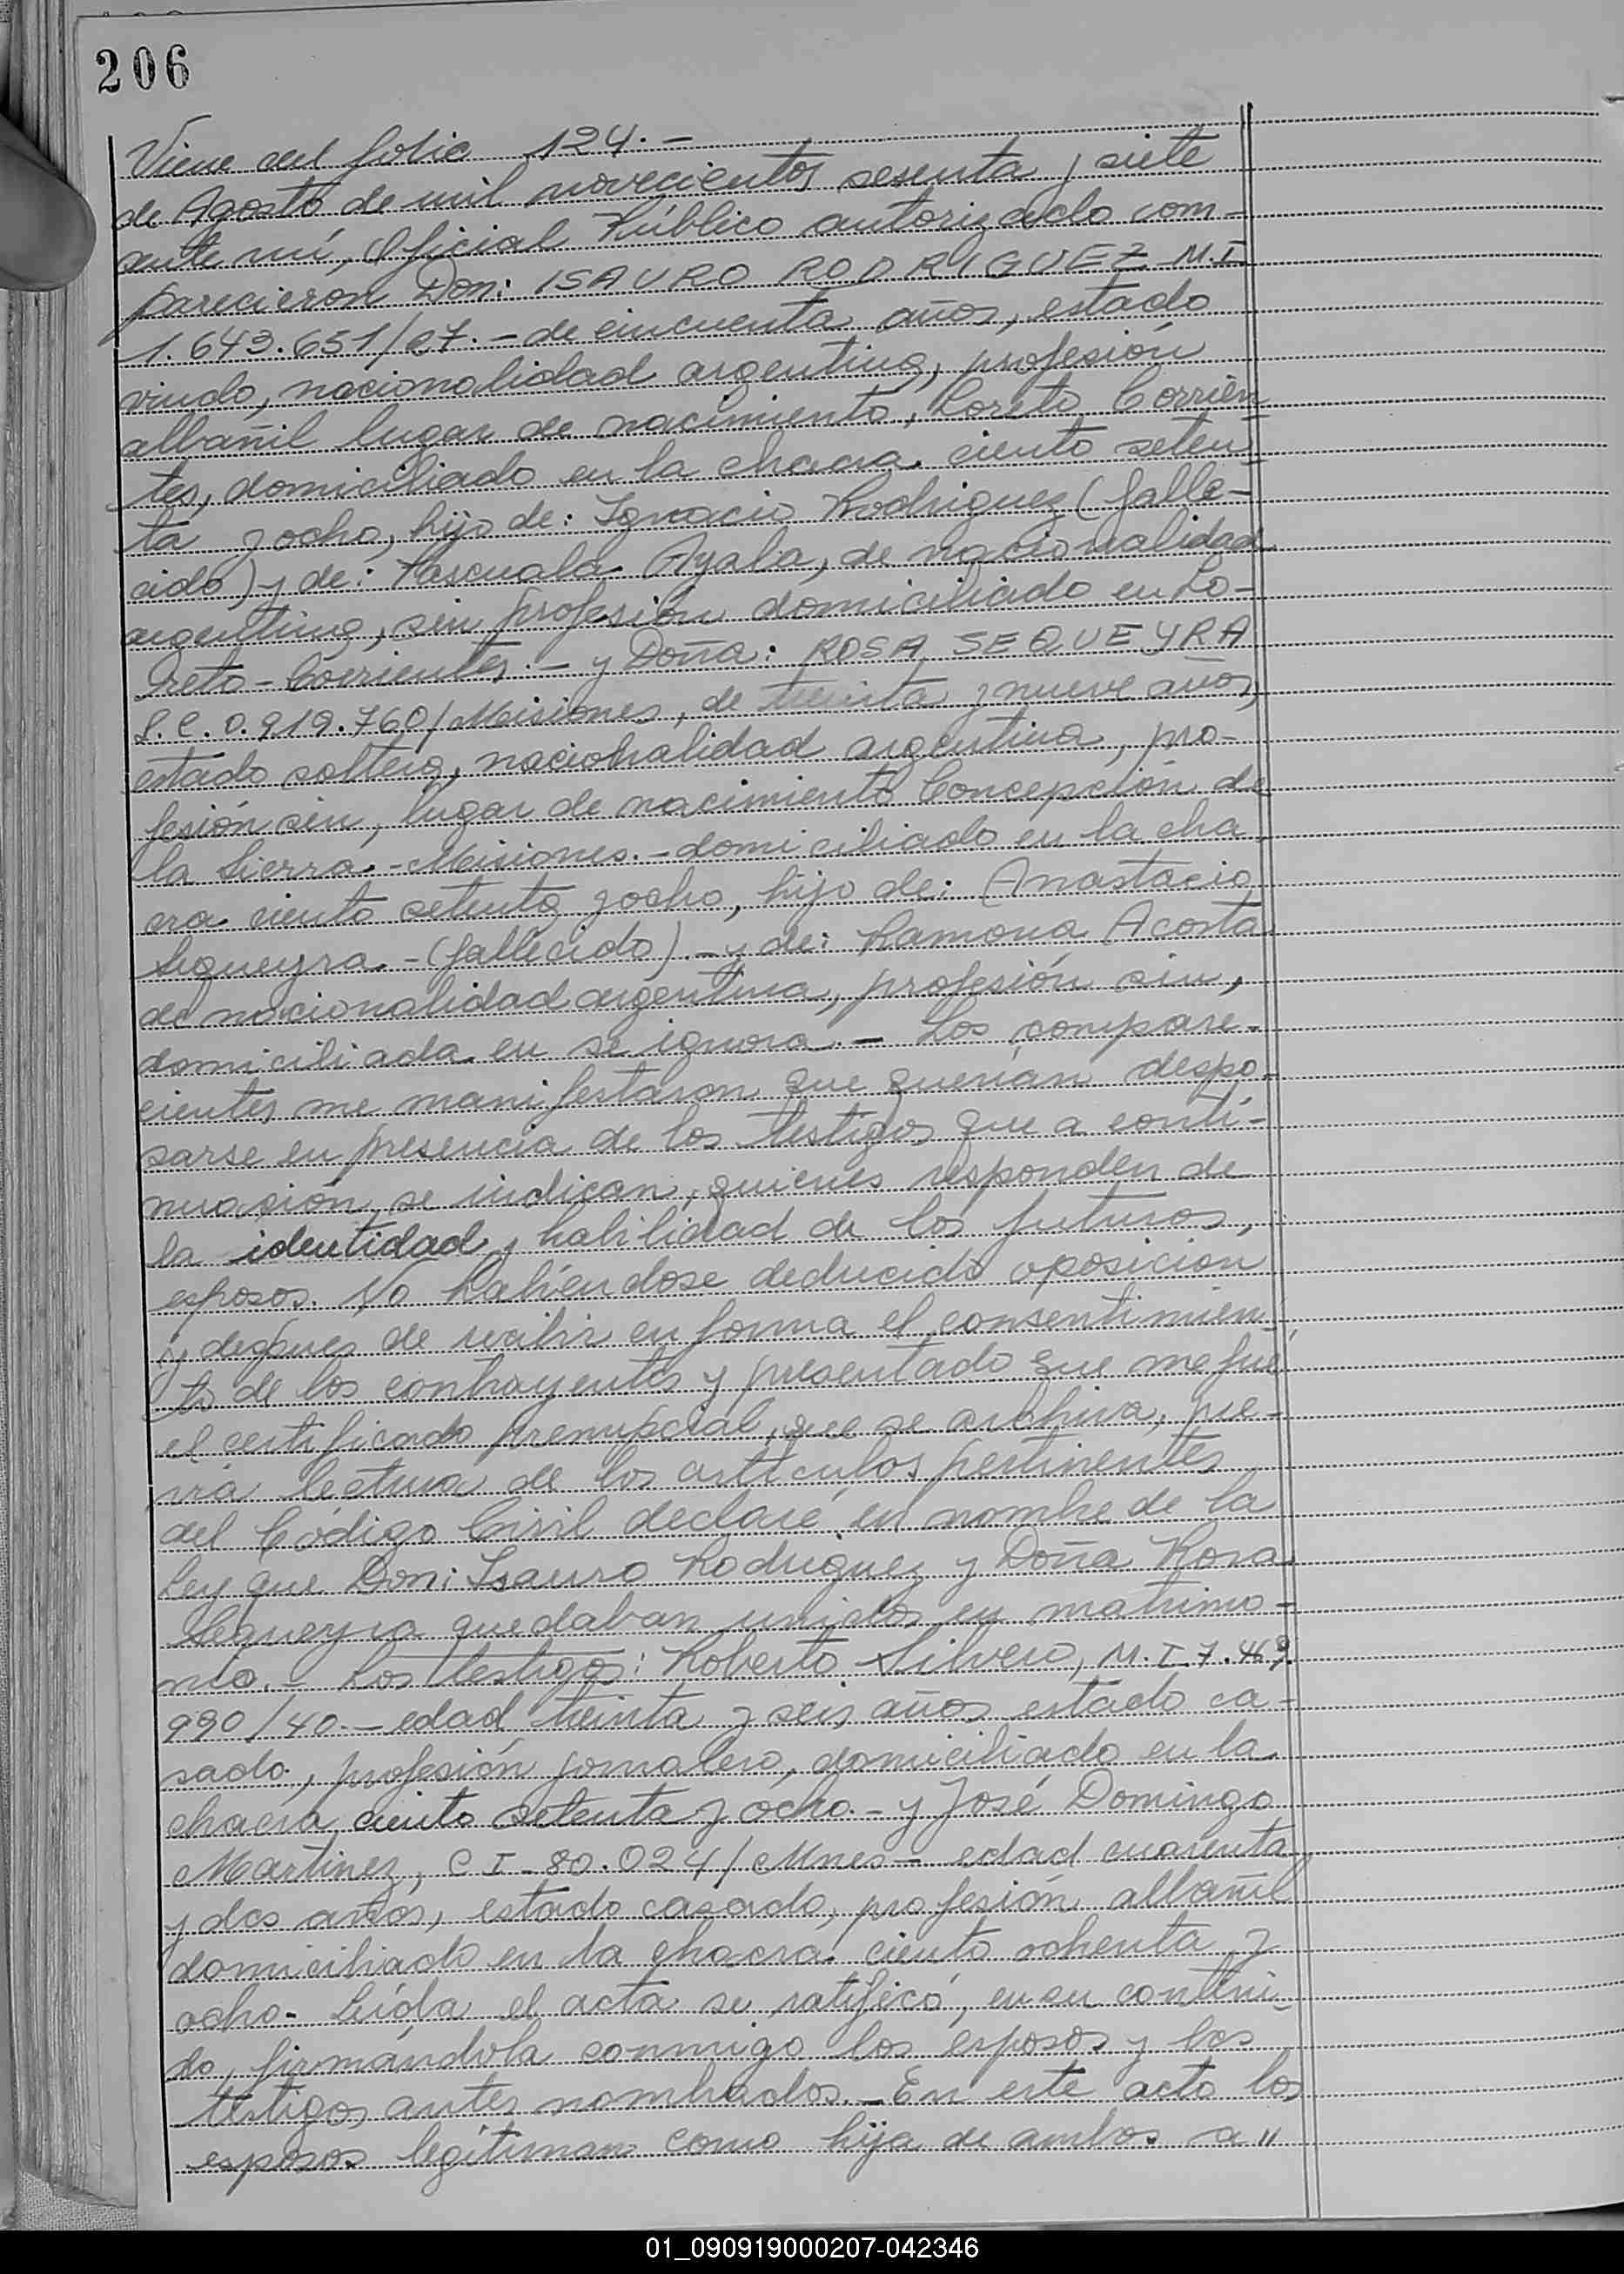 206
Viene del folio 124.-
de Agosto de mil novecientos sesenta y siete
ante mí, Oficial Público autorizado com-
parecieron Don: ISAURO RODRIGUEZ M.I
1.643.651/27.- de cincuenta años, estado
viudo, nacionalidad argentina, profesión
albañil lugar de nacimiento, Loreto Corrien
tes, domiciliado en la chacra ciento seten-
ta y ocho, hijo de: Ignacio Rodriguez (falle-
cido) y de: Pascuala Ayala, de nacionalidad
argentina, sin profesión domiciliado en Lo-
reto - Corrientes.- y Doña: ROSA SEQUEYRA
L.C. 0.919.760/Misiones, de treinta y nueve años,
estado soltera, nacionalidad argentina, pro-
fesión sin, lugar de nacimiento Concepción de
la Sierra - Misiones.- domiciliado en la cha
cra ciento setenta y ocho, hijo de: Anastacio
Sequeyra - (fallecido).- y de: Ramona Acosta
de nacionalidad argentina, profesión sin,
domiciliada en se ignora.- Los compare-
cientes me manifestaron que querían despo-
sarse en presencia de los testigos que a conti-
nuasión se indican, quienes responden de
la identidad y habilidad de los futuros
esposos. No habiendose deducido oposicion
y despues de recibir en forma el consentimien-
to de los contrayentes y presentado que me fué
el certificado prenupcial, que se archiva, pre-
via lectura de los artículos pertinentes
del Código Civil declaré en nombre de la
Ley que Don: Isauro Rodriguez y Doña Rosa
Sequeyra quedaban unidos en matrimo-
nio.- Los testigos: Roberto Silvero, M.I. 7.469.
990/40.- edad treinta y seis años estado ca-
sado, profesión jornalero, domiciliado en la
chacra ciento setenta y ocho.- y José Domingo
Martinez, C I - 80.024/Mnes - edad cuarenta
y dos años, estado casado, profesión albañil
domiciliado en la chacra ciento ochenta y
ocho - Leída el acta se ratificó, en su conteni-
do, firmándola conmigo los esposos y los
testigos antes nombrados.- En este acto los
esposos legitiman como hija de ambos a "
01_090919000207-042346